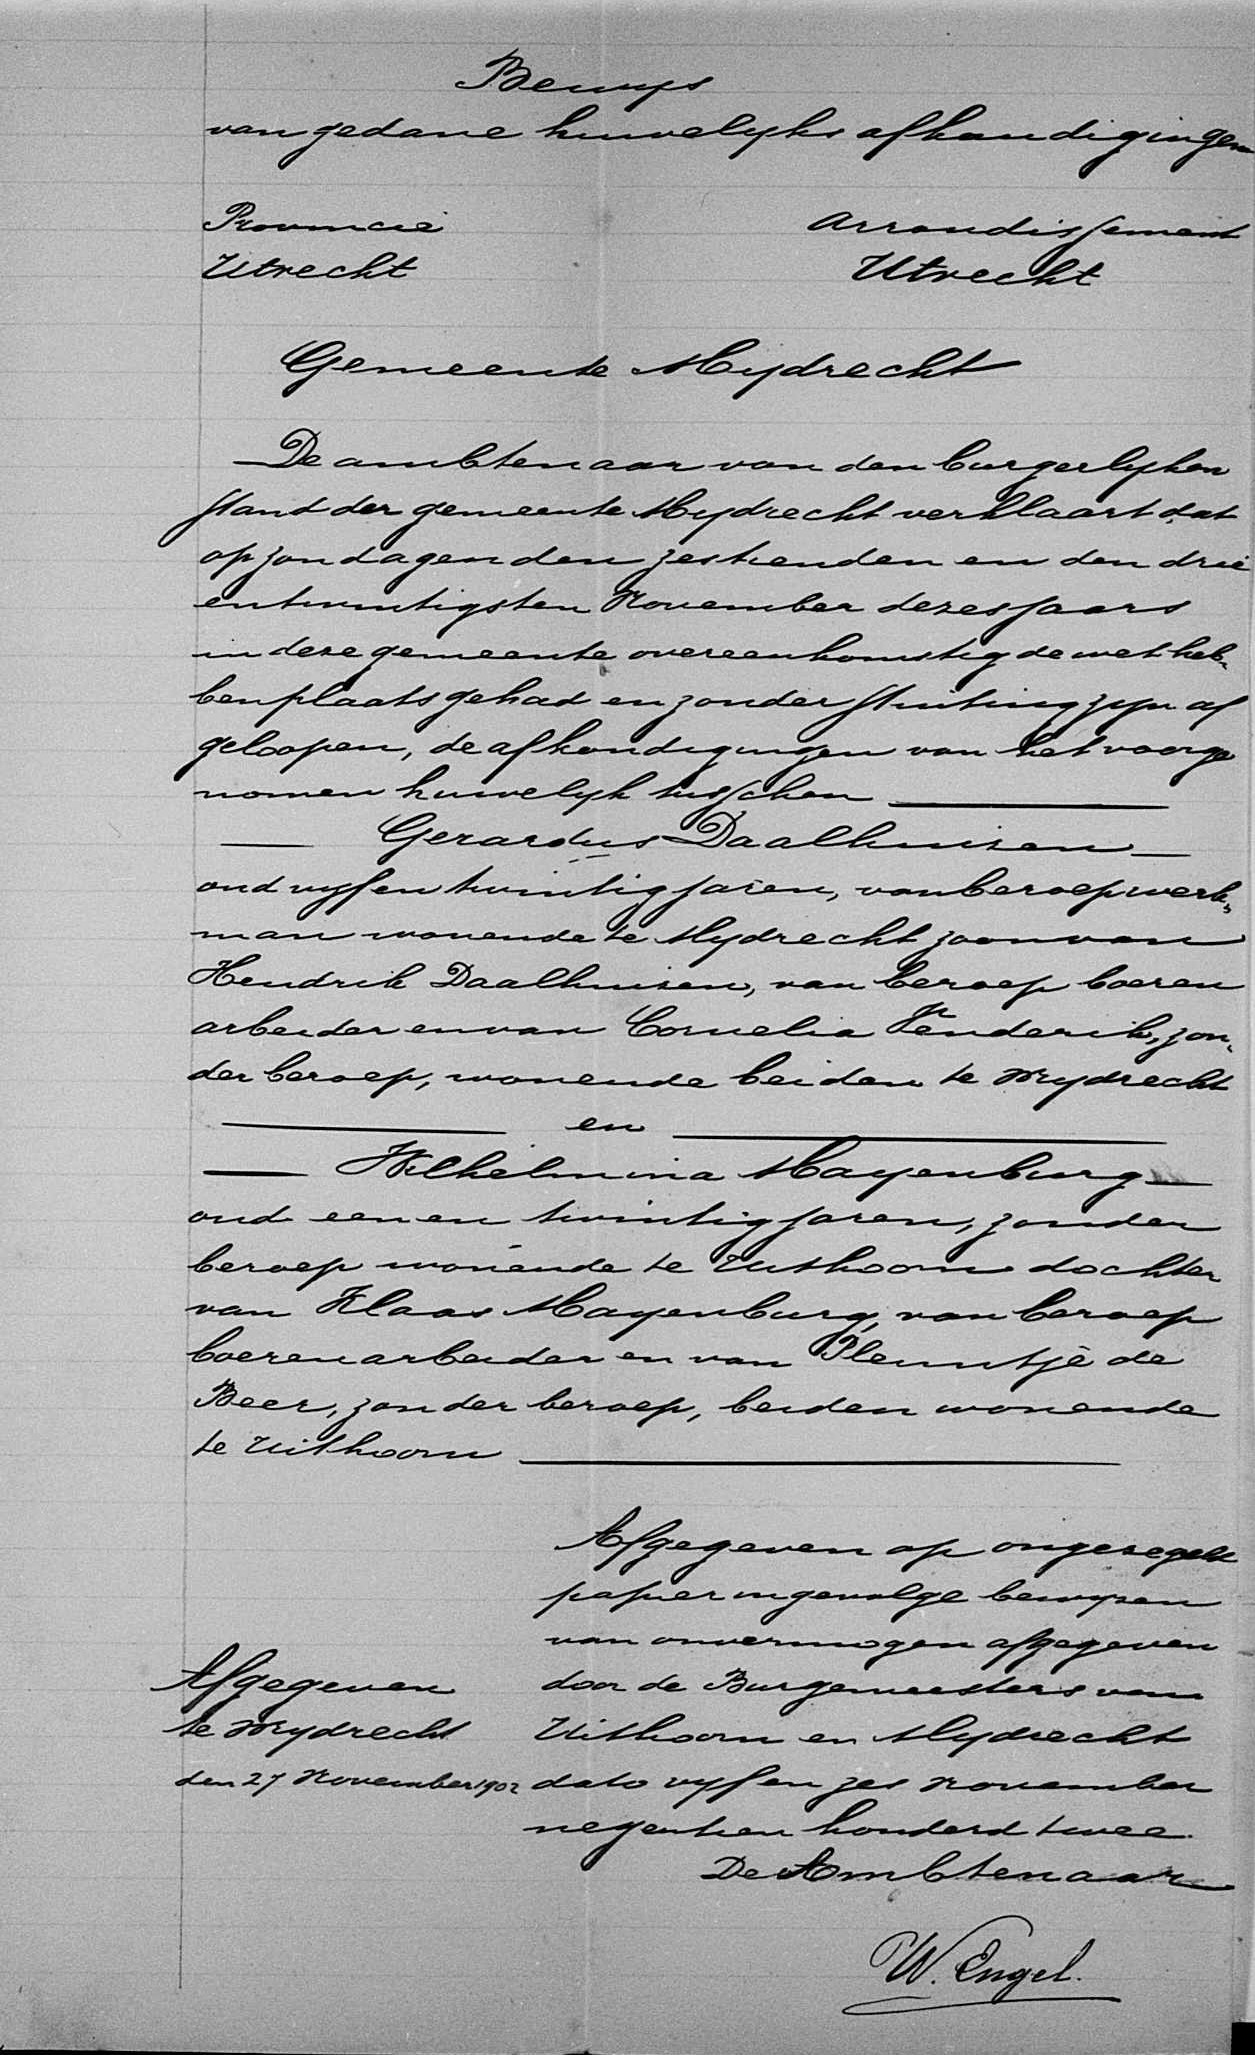 Bewys
van gedane huwelyks afkondigingen
Provincie Arrondissement
Utrecht Utrecht
Gemeente Mijdrecht
De ambtenaar van den burgerlyken
stand der gemeente Mydrecht verklaart, dat
op zondagen den zestienden en den drie
entwintigsten November dezes jaars
in deze gemeente overeenkomstig de wet heb-
ben plaats gehad en zonder stuiting zyn af
geloopen, de afkondigingen van het voorge
nomen huwelyk tusschen
Gerardus Daalhuisen
oud vyfentwintig jaren, van beroep werk-
man wonende te Mydrecht zoon van
Hendrik Daalhuisen, van beroep boeren
arbeider en van Cornelia Venderik, zon-
der beroep, wonende beiden te Mydrecht
en
Wilhelmina Mayenburg
oud een en twintig jaren, zonder
beroep wonende te Uithoorn dochter
van Klaas Mayenburg, van beroep
boerenarbeider en van Pleuntje de
Beer, zonder beroep, beiden wonende
te Uithoorn
Afgegeven op ongezegeld
papier ingevolge bewyzen
van onvermogen afgegeven
door de Burgemeesters van
Uithoorn en Mydrecht
dato vyf en zes November
negentien honderd twee
Afgegeven
te Mydrecht
den 27 November 1902
De Ambtenaar
W. Engel.